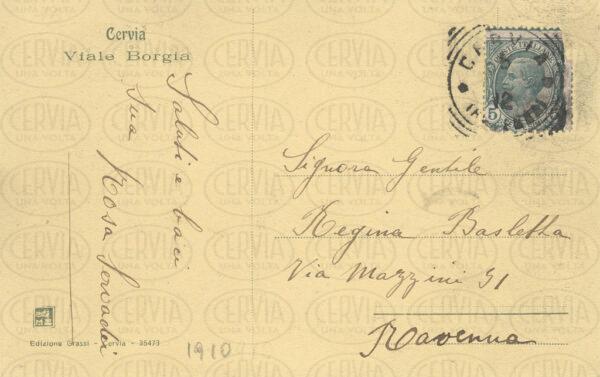 Cervia
Viale Borgia
Saluti e baci
Sua
Rosa Servadei
CERVIA
5
Signora Gentile
Regina Basletta
Via Mazzini 51
Ravenna
Edizione Grassi - Cervia - 35473
1910
CERVIA
UNA VOLTA